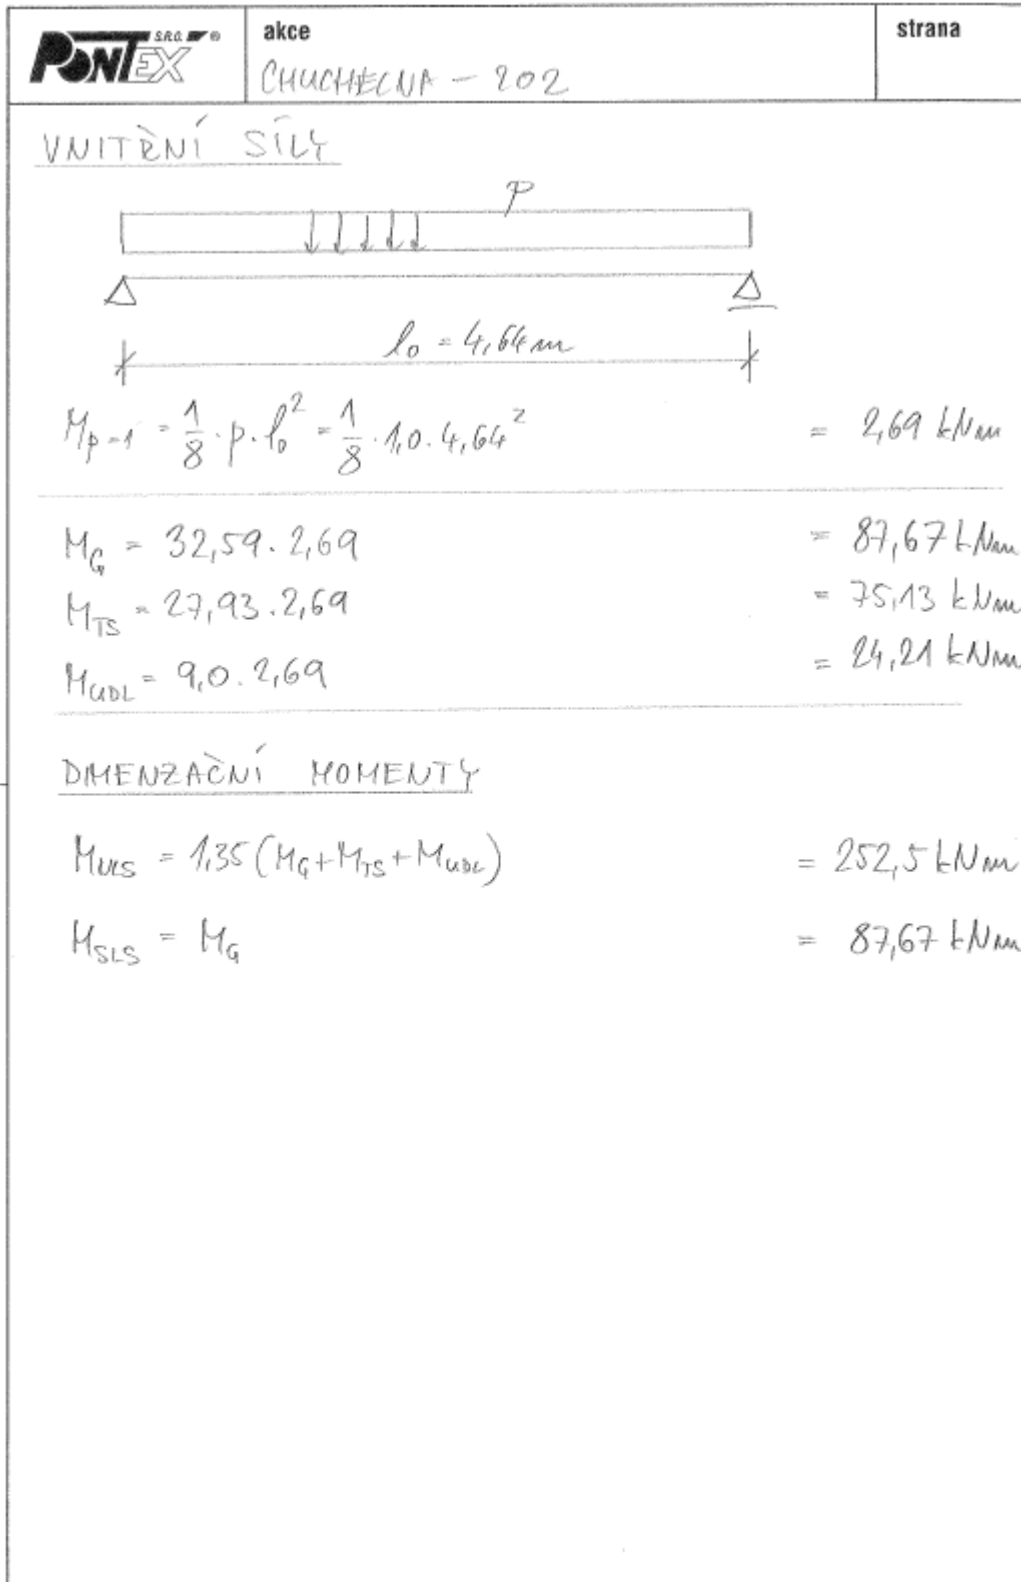 PONTEX S.R.O. ®
akce
strana
CHUCHELNA - 202
VNITŘNÍ SÍLY
P
l₀ = 4,64 m
Mp=1 = 1/8 · p · l₀² = 1/8 · 1,0 · 4,64² = 2,69 kNm
MG = 32,59 · 2,69 = 87,67 kNm
MTS = 27,93 · 2,69 = 75,13 kNm
MUDL = 9,0 · 2,69 = 24,21 kNm
DIMENZAČNÍ MOMENTY
MULS = 1,35 (MG + MTS + MUDL) = 252,5 kNm
MSLS = MG = 87,67 kNm